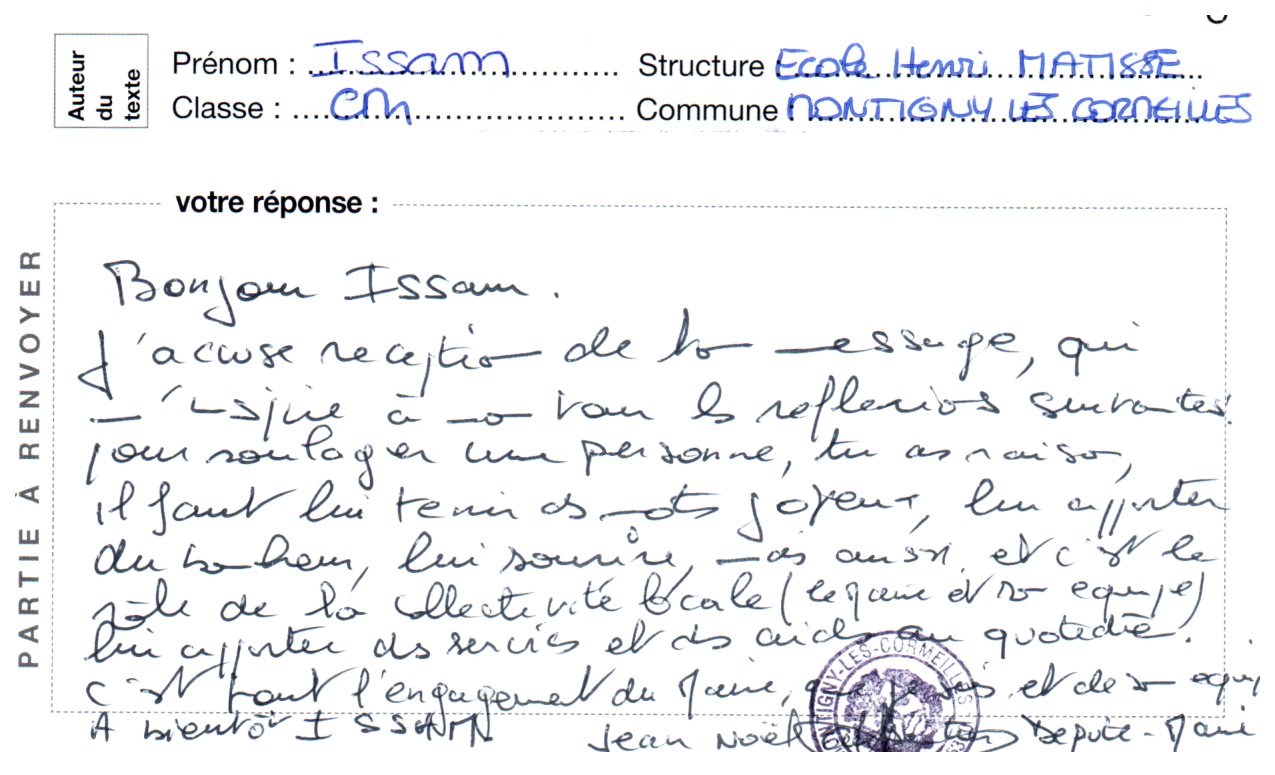 Auteur du texte
Prénom : Issam Structure Ecole Henri MATISSE
Classe : CM Commune MONTIGNY LES CORMEILLES
votre réponse :
PARTIE À RENVOYER
Bonjour Issam.
J'accuse reception de ton message, qui
m'inspire à mon tour les reflexions suivantes.
pour soulager une personne, tu as raison,
il faut lui tenir des mots joyeux, lui apporter
du bonheur, lui sourire, mais aussi, et c'est le
rôle de la collectivité locale (le maire et son equipe)
lui apporter des services et des aides au quotidien.
c'est tout l'engagement du Maire, que je suis, et de son equipe
A bientôt ISSAM
Jean Noël Député-Maire
TIGNY-LES-CORMEILLES